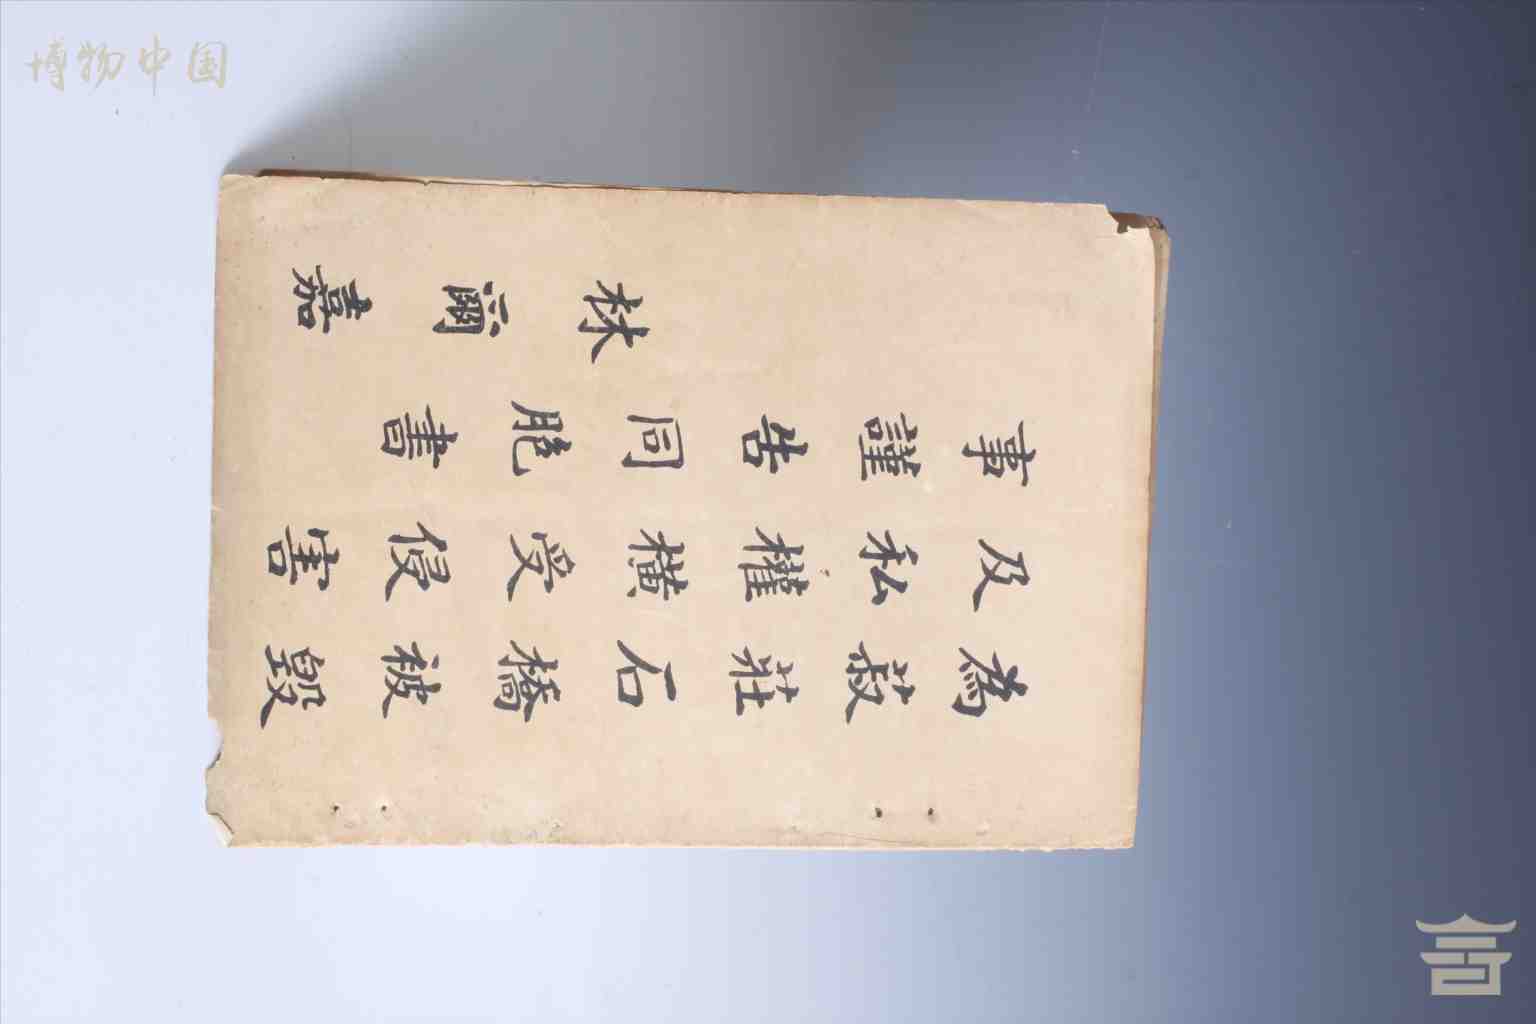 博物中国
為菽莊石橋被毀
及私權橫受侵害
事謹告同胞書
林爾嘉